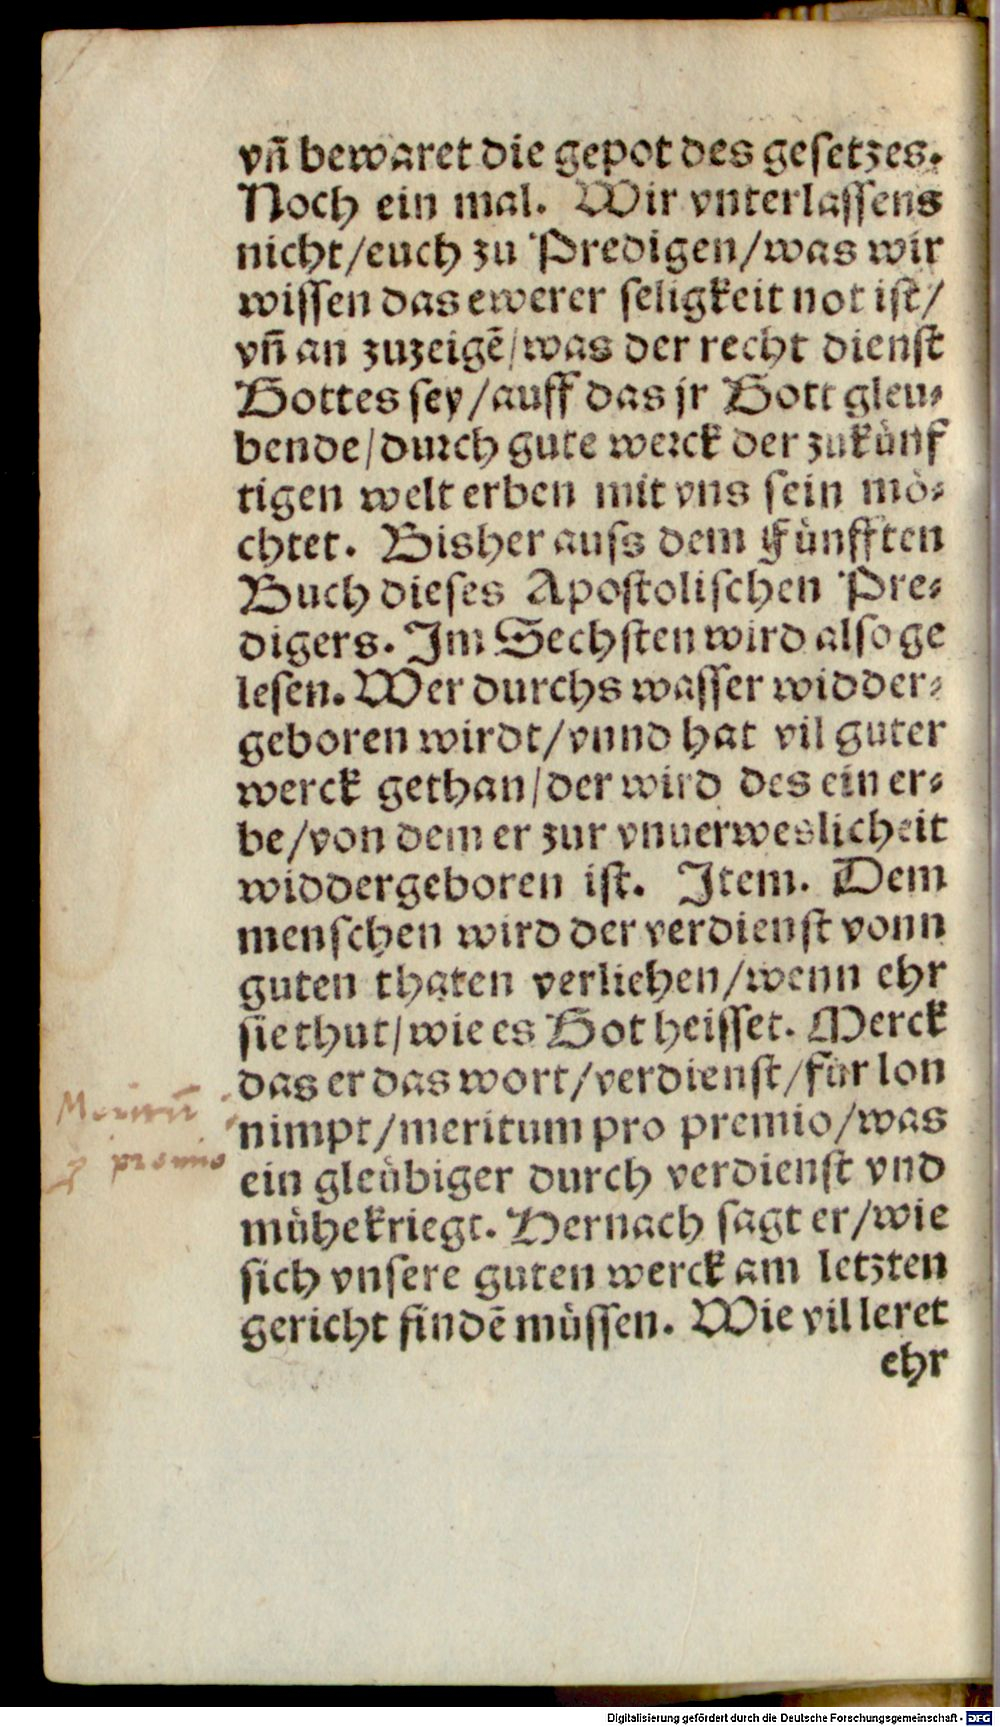 vñ bewaret die gepot des gesetzes.
Noch ein mal. Wir vnterlassens
nicht/euch zu Predigen/was wir
wissen das ewerer seligkeit not ist/
vñ an zuzeigẽ/was der recht dienst
Gottes sey/auff das jr Gott gleu⸗
bende/durch gute werck der zukůnf
tigen welt erben mit vns sein mo̊⸗
chtet. Bisher auss dem Fůnfften
Buch dieses Apostolischen Pre⸗
digers. Im Sechsten wird also ge
lesen. Wer durchs wasser widder⸗
geboren wirdt/vnnd hat vil guter
werck gethan/der wird des ein er⸗
be/von dem er zur vnuerweslicheit
widdergeboren ist. Item. Dem
menschen wird der verdienst vonn
guten thaten verliehen/wenn ehr
sie thut/wie es Got heisset. Merck
das er das wort/verdienst/fůr lon
nimpt/meritum pro premio/was
ein gleůbiger durch verdienst vnd
můhe kriegt. Hernach sagt er/wie
sich vnsere guten werck am letzten
gericht findẽ můssen. Wie vil leret
ehr
Meritũ
ꝓ premio
Digitalisierung gefördert durch die Deutsche Forschungsgemeinschaft - DFG